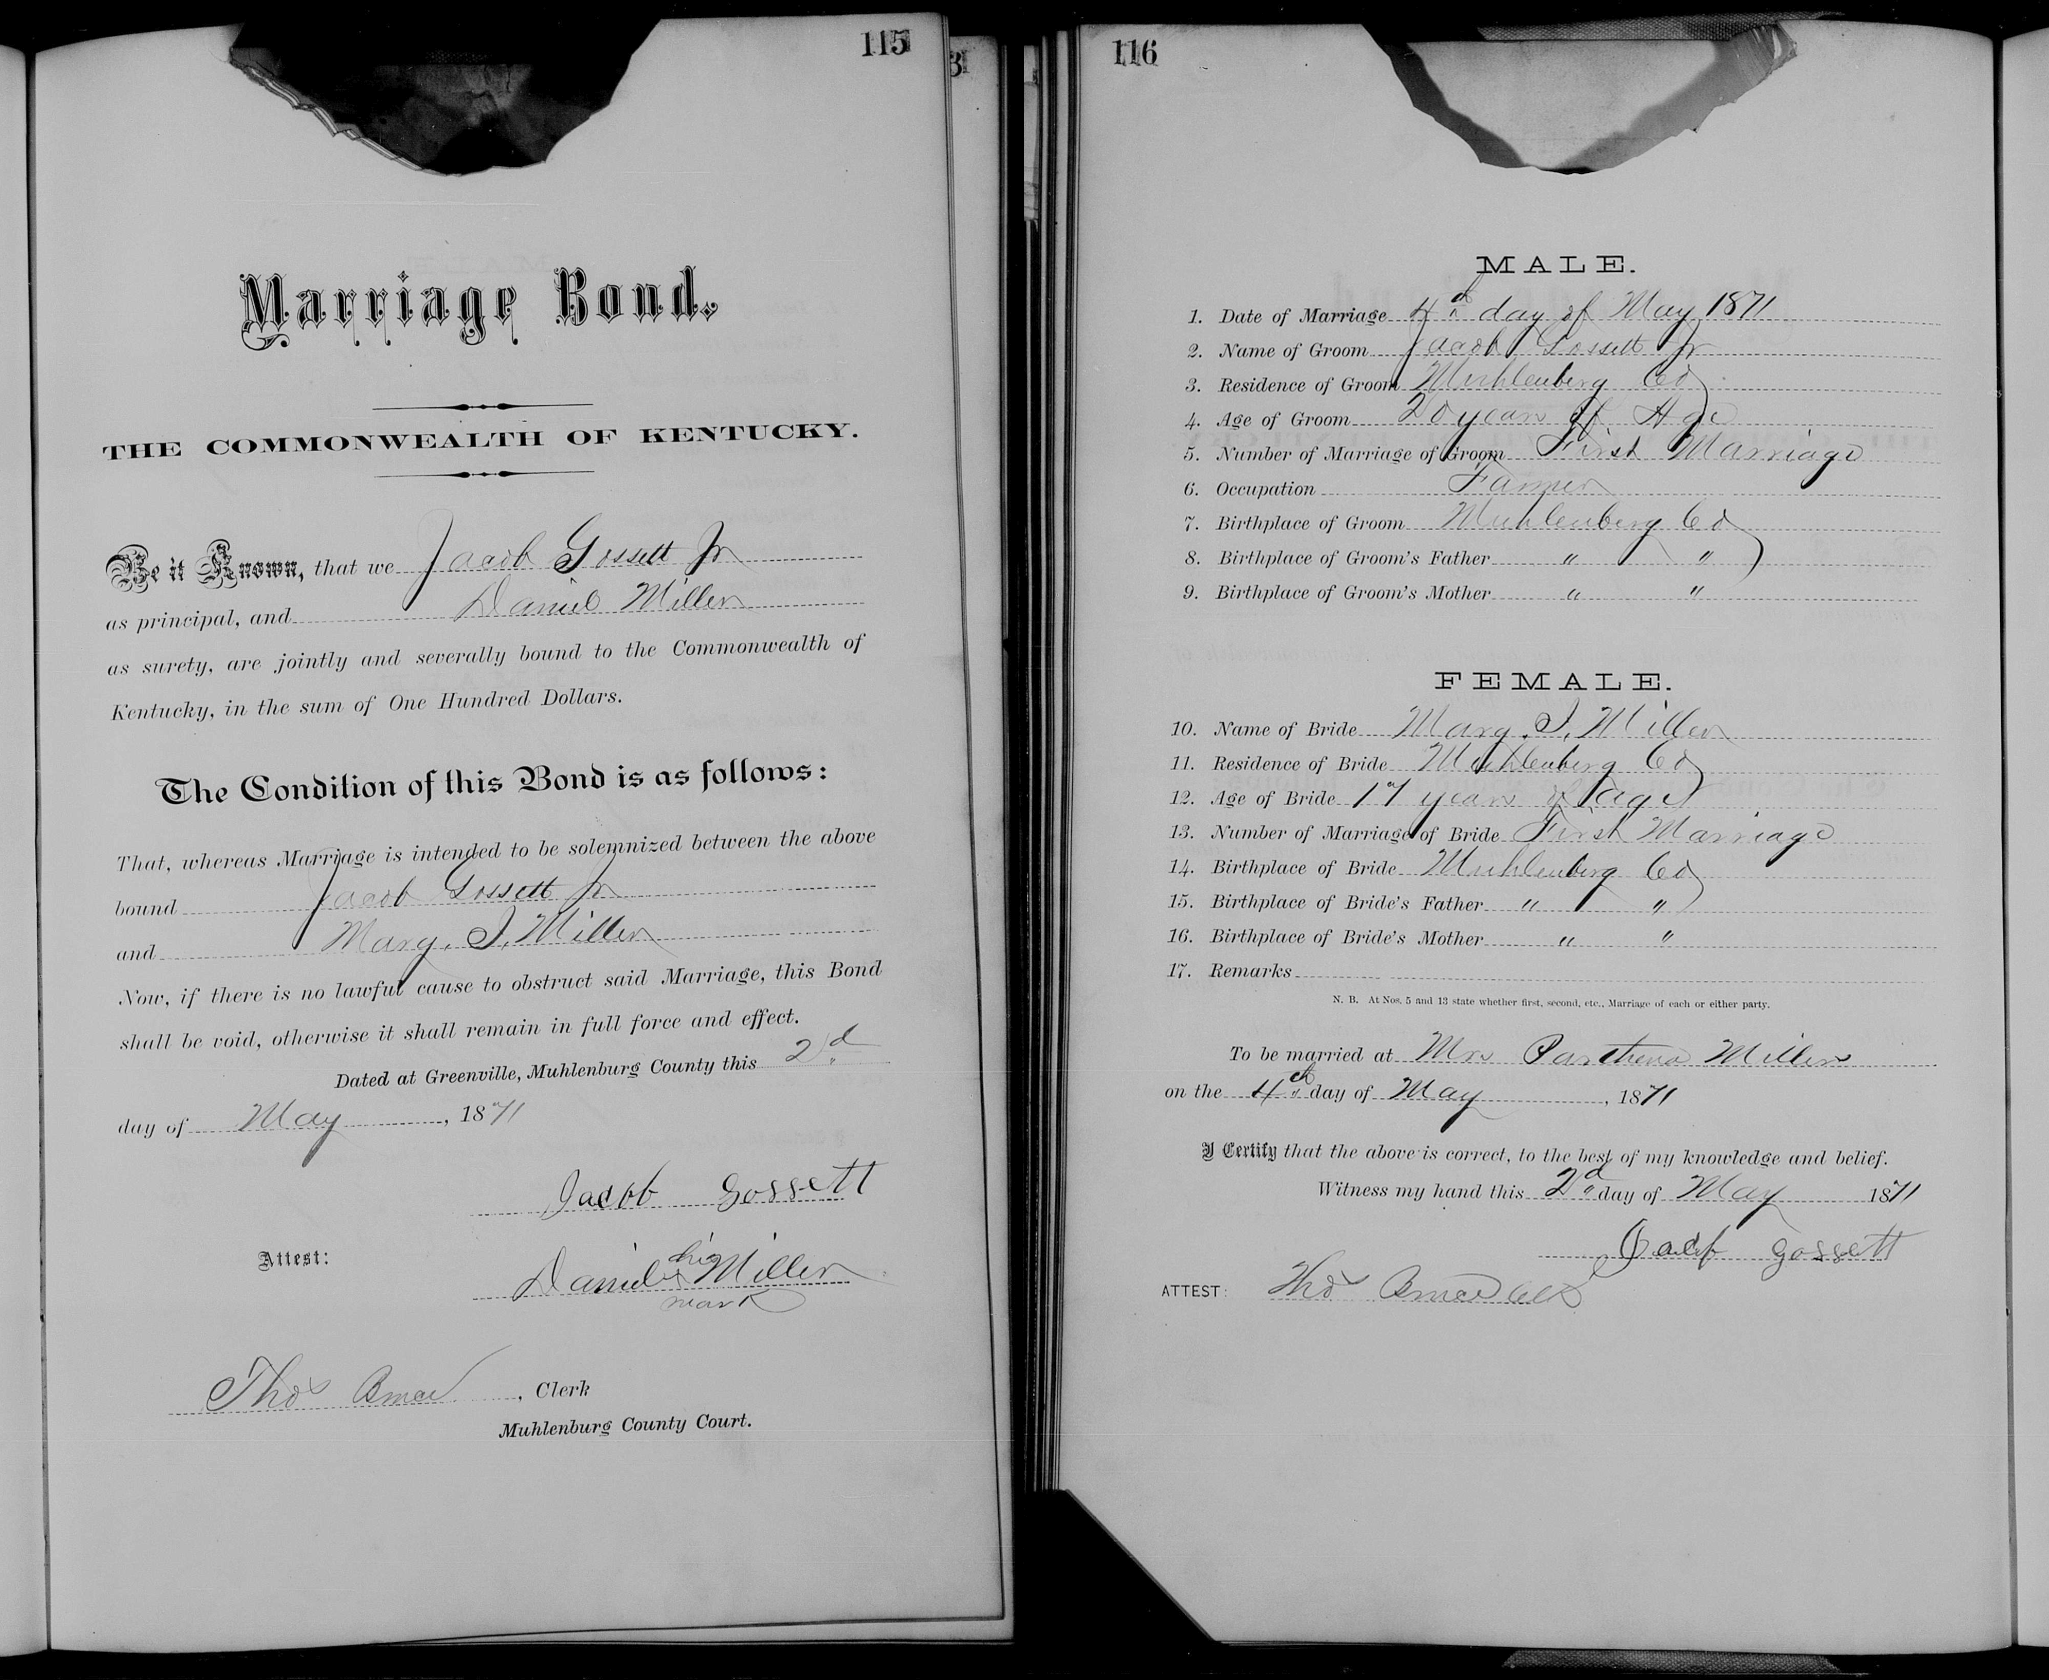 115
Marriage Bond.
THE COMMONWEALTH OF KENTUCKY.
Be it Known, that we Jacob Gossett Jr
as principal, and Daniel Miller
as surety, are jointly and severally bound to the Commonwealth of
Kentucky, in the sum of One Hundred Dollars.
The Condition of this Bond is as follows:
That, whereas Marriage is intended to be solemnized between the above
bound Jacob Gossett Jr
and Mary. J. Miller
Now, if there is no lawful cause to obstruct said Marriage, this Bond
shall be void, otherwise it shall remain in full force and effect.
Dated at Greenville, Muhlenburg County this 2d
day of May, 1871
Jacob Gossett
his
Attest: Daniel x Miller
mark
Thos Bruce, Clerk
Muhlenburg County Court.
116
MALE.
1. Date of Marriage 4th day of May 1871
2. Name of Groom Jacob Gossett Jr
3. Residence of Groom Muhlenberg Co
4. Age of Groom 20 years of Age
5. Number of Marriage of Groom First Marriage
6. Occupation Farmer
7. Birthplace of Groom Muhlenberg Co
8. Birthplace of Groom's Father " "
9. Birthplace of Groom's Mother " "
FEMALE.
10. Name of Bride Mary. J. Miller
11. Residence of Bride Muhlenberg Co
12. Age of Bride 17 years of age
13. Number of Marriage of Bride First Marriage
14. Birthplace of Bride Muhlenberg Co
15. Birthplace of Bride's Father " "
16. Birthplace of Bride's Mother " "
17. Remarks
N. B. At Nos. 5 and 13 state whether first, second, etc., Marriage of each or either party.
To be married at Mrs Parthena Millers
on the 4th day of May, 1871
I Certify that the above is correct, to the best of my knowledge and belief.
Witness my hand this 2d day of May 1871
Jacob Gossett
ATTEST: Thos Bruce Clk